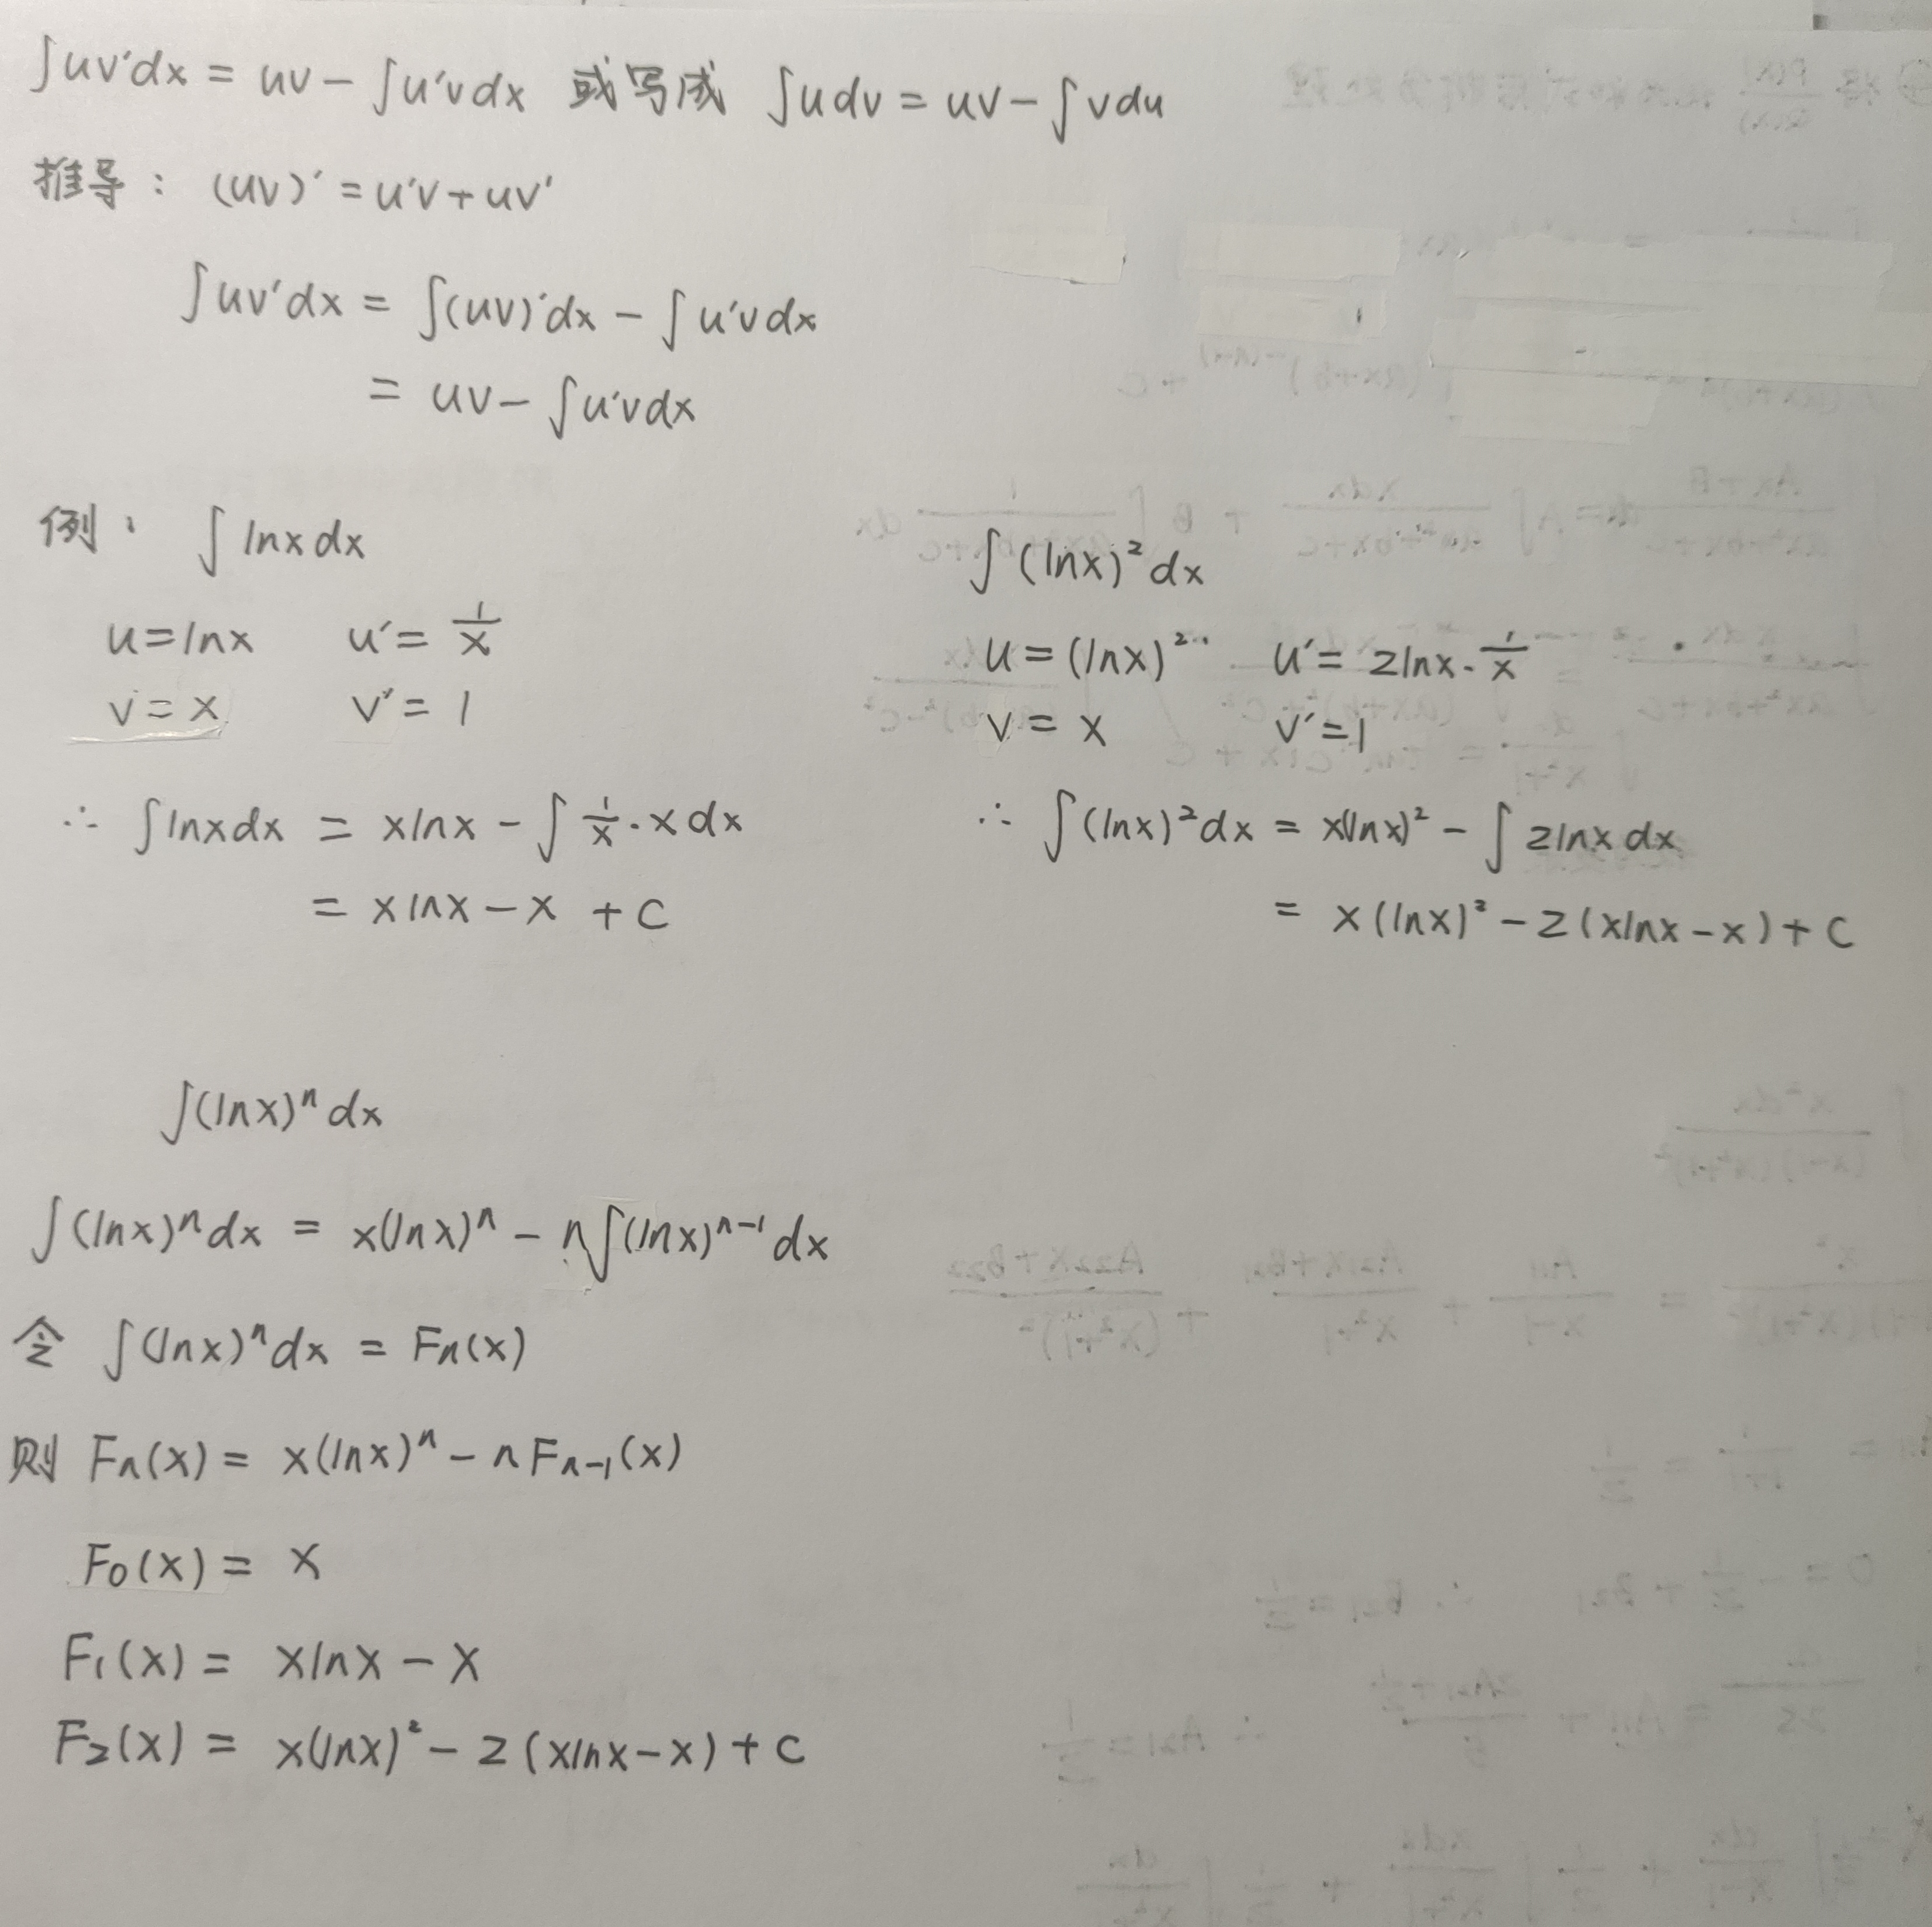 ∫uv'dx = uv − ∫u'vdx 或写成 ∫udv = uv − ∫vdu
推导: (uv)' = u'v + uv'
∫uv'dx = ∫(uv)'dx − ∫u'vdx
= uv − ∫u'vdx
例: ∫lnxdx
u = lnx u' = 1/x
v = x v' = 1
∴ ∫lnxdx = xlnx − ∫1/x·xdx
= xlnx − x + C
∫(lnx)²dx
u = (lnx)² u' = 2lnx·1/x
v = x v' = 1
∴ ∫(lnx)²dx = x(lnx)² − ∫2lnxdx
= x(lnx)² − 2(xlnx − x) + C
∫(lnx)ⁿdx
∫(lnx)ⁿdx = x(lnx)ⁿ − n∫(lnx)ⁿ⁻¹dx
令 ∫(lnx)ⁿdx = Fₙ(x)
则 Fₙ(x) = x(lnx)ⁿ − nFₙ₋₁(x)
F₀(x) = x
F₁(x) = xlnx − x
F₂(x) = x(lnx)² − 2(xlnx − x) + C